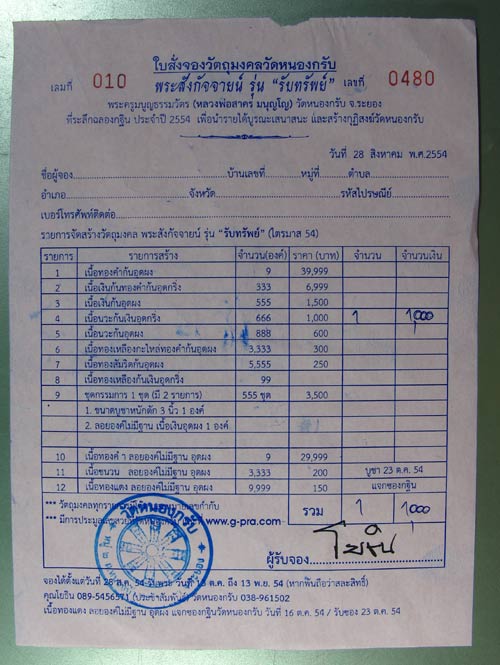 ใบสั่งจองวัตถุมงคลวัดหนองกรับ
เล่มที่ 010 พระสังกัจจายน์ รุ่น "รับทรัพย์" เลขที่ 0480
พระครูมนูญธรรมวัตร (หลวงพ่อสาคร มนุญโญ) วัดหนองกรับ จ.ระยอง
ที่ระลึกฉลองกฐิน ประจำปี 2554 เพื่อนำรายได้บูรณะเสนาสนะ และสร้างกุฏิสงฆ์วัดหนองกรับ
วันที่ 28 สิงหาคม พ.ศ.2554
ชื่อผู้จอง บ้านเลขที่ หมู่ที่ ตำบล
อำเภอ จังหวัด รหัสไปรษณีย์
เบอร์โทรศัพท์ติดต่อ
รายการจัดสร้างวัตถุมงคล พระสังกัจจายน์ รุ่น "รับทรัพย์" (ไตรมาส 54)
รายการ รายการสร้าง จำนวน(องค์) ราคา (บาท) จำนวน จำนวนเงิน
1 เนื้อทองคำก้นอุดผง 9 39,999
2 เนื้อเงินก้นทองคำอุดกริ่ง 333 6,999
3 เนื้อเงินก้นอุดผง 555 1,500
4 เนื้อนวะก้นเงินอุดกริ่ง 666 1,000 1 1,000
5 เนื้อนวะก้นอุดผง 888 600
6 เนื้อทองเหลืองกะไหล่ทองคำก้นอุดผง 3,333 300
7 เนื้อทองสัมริดก้นอุดผง 5,555 250
8 เนื้อทองเหลืองก้นเงินอุดกริ่ง 99
9 ชุดกรรมการ 1 ชุด (มี 2 รายการ) 555 ชุด 3,500
1. ขนาดบูชาหน้าตัก 3 นิ้ว 1 องค์
2. ลอยองค์ไม่มีฐาน เนื้อเงินอุดผง 1 องค์
10 เนื้อทองคำ ลอยองค์ไม่มีฐาน อุดผง 9 29,999
11 เนื้อชนวน ลอยองค์ไม่มีฐาน อุดผง 3,333 200 บูชา 23 ต.ค. 54
12 เนื้อทองแดง ลอยองค์ไม่มีฐาน อุดผง 9,999 150 แจกซองกฐิน
*** วัตถุมงคลทุกรายการ หมายเลขกำกับ รวม 1 1,000
*** มีการประมูล www.g-pra.com
วัดหนองกรับ
ผู้รับจอง
จองได้ตั้งแต่วันที่ 28 ส.ค. 54 ต.ค. 54 ถึง 13 พ.ย. 54 (หากพ้นถือว่าสละสิทธิ์)
คุณโยธิน 089-5456571 (ประชาสัมพันธ์) วัดหนองกรับ 038-961502
เนื้อทองแดง ลอยองค์ไม่มีฐาน อุดผง แจกซองกฐินวัดหนองกรับ วันที่ 16 ต.ค. 54 / รับซอง 23 ต.ค. 54